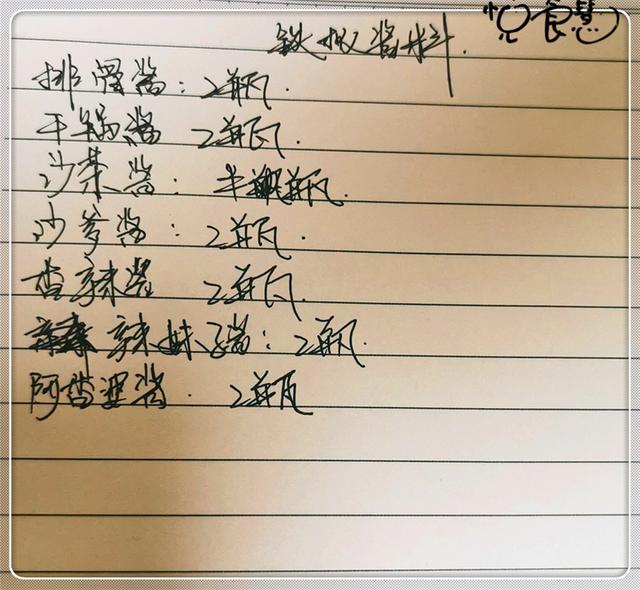 悦食慧
铁板酱料.
排骨酱:2瓶.
干锅酱 2瓶.
沙茶酱:半瓶.
沙爹酱:2瓶.
香辣酱 2瓶.
辣妹子酱:2瓶.
阿香婆酱. 2瓶